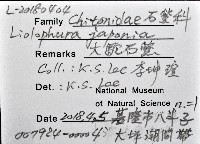 L-20180404
Family Chitonidae 石鱉科
Liolophura japonia
Remarks 大駝石鱉
Coll.: K.S. Lee 李坤瑄
Det.: K.S. Lee
National Museum
of Natural Science n.=1
Date 2018.4.5 基隆市八斗子
007924-00004 大坪潮間帶